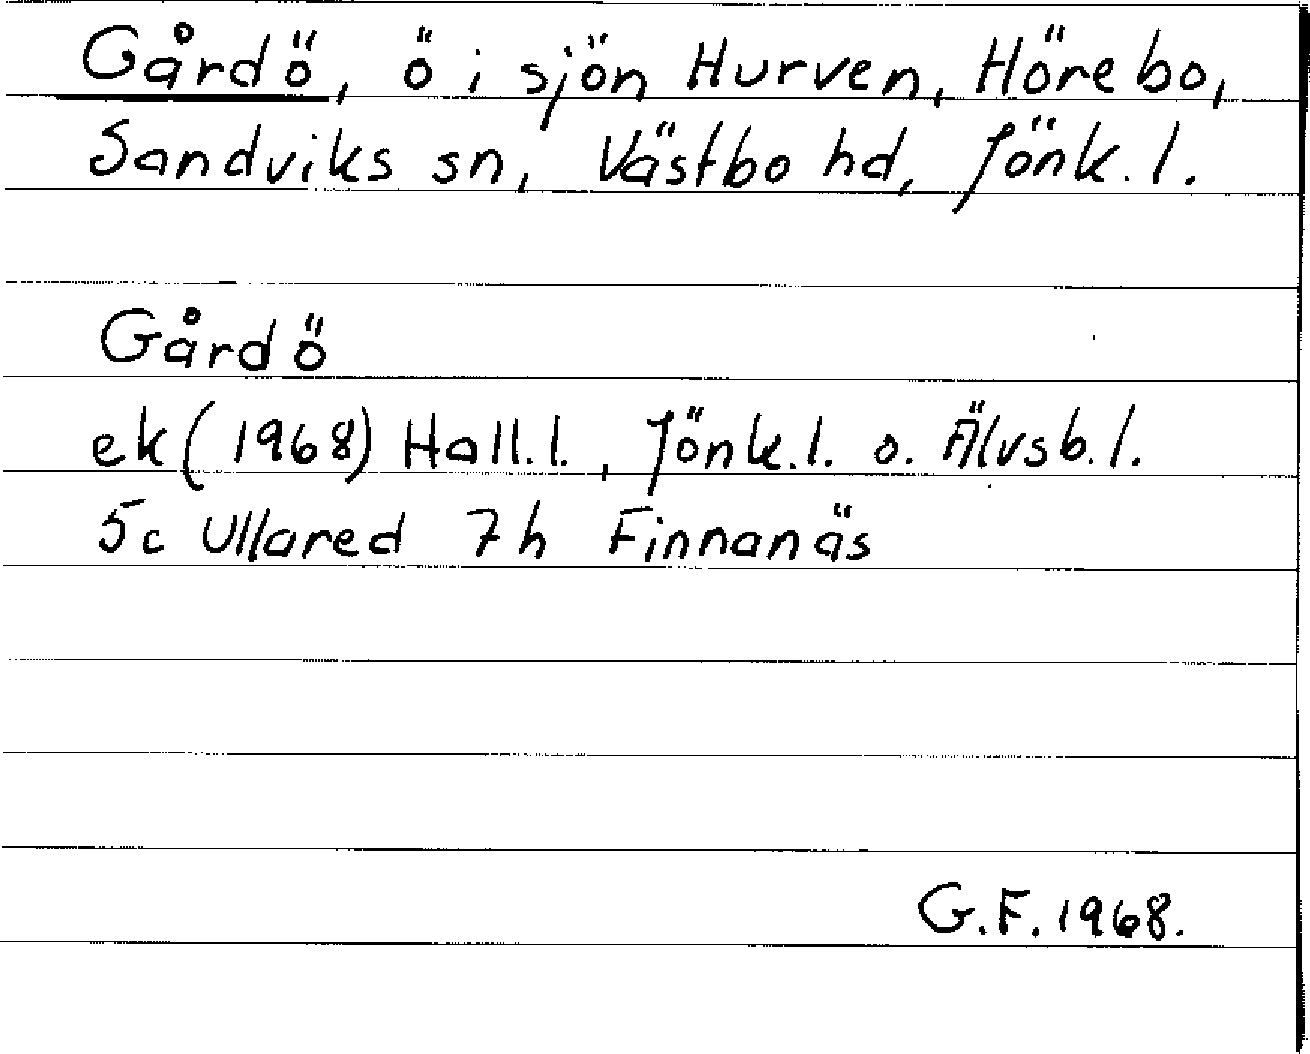 Gårdö, ö i sjön Hurven, Hörebo,
Sandviks sn, Västbo hd, Jönk. l.
Gårdö
ek (1968) Hall. l., Jönk. l. o. Älvsb. l.
5c Ullared 7h Finnanäs
G. F. 1968.